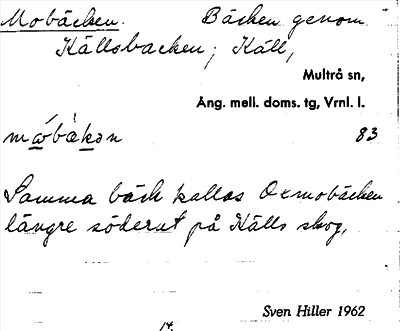 Mobäcken. Bäcken genom
Källsbacken; Käll,
Multrå sn,
Ång. mell. doms. tg, Vrnl. l.
83
Samma bäck kallas Oxmobäcken
längre söderut på Källs skog.
Sven Hiller 1962